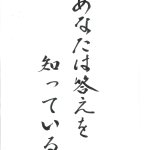 あなたは答えを
知っている